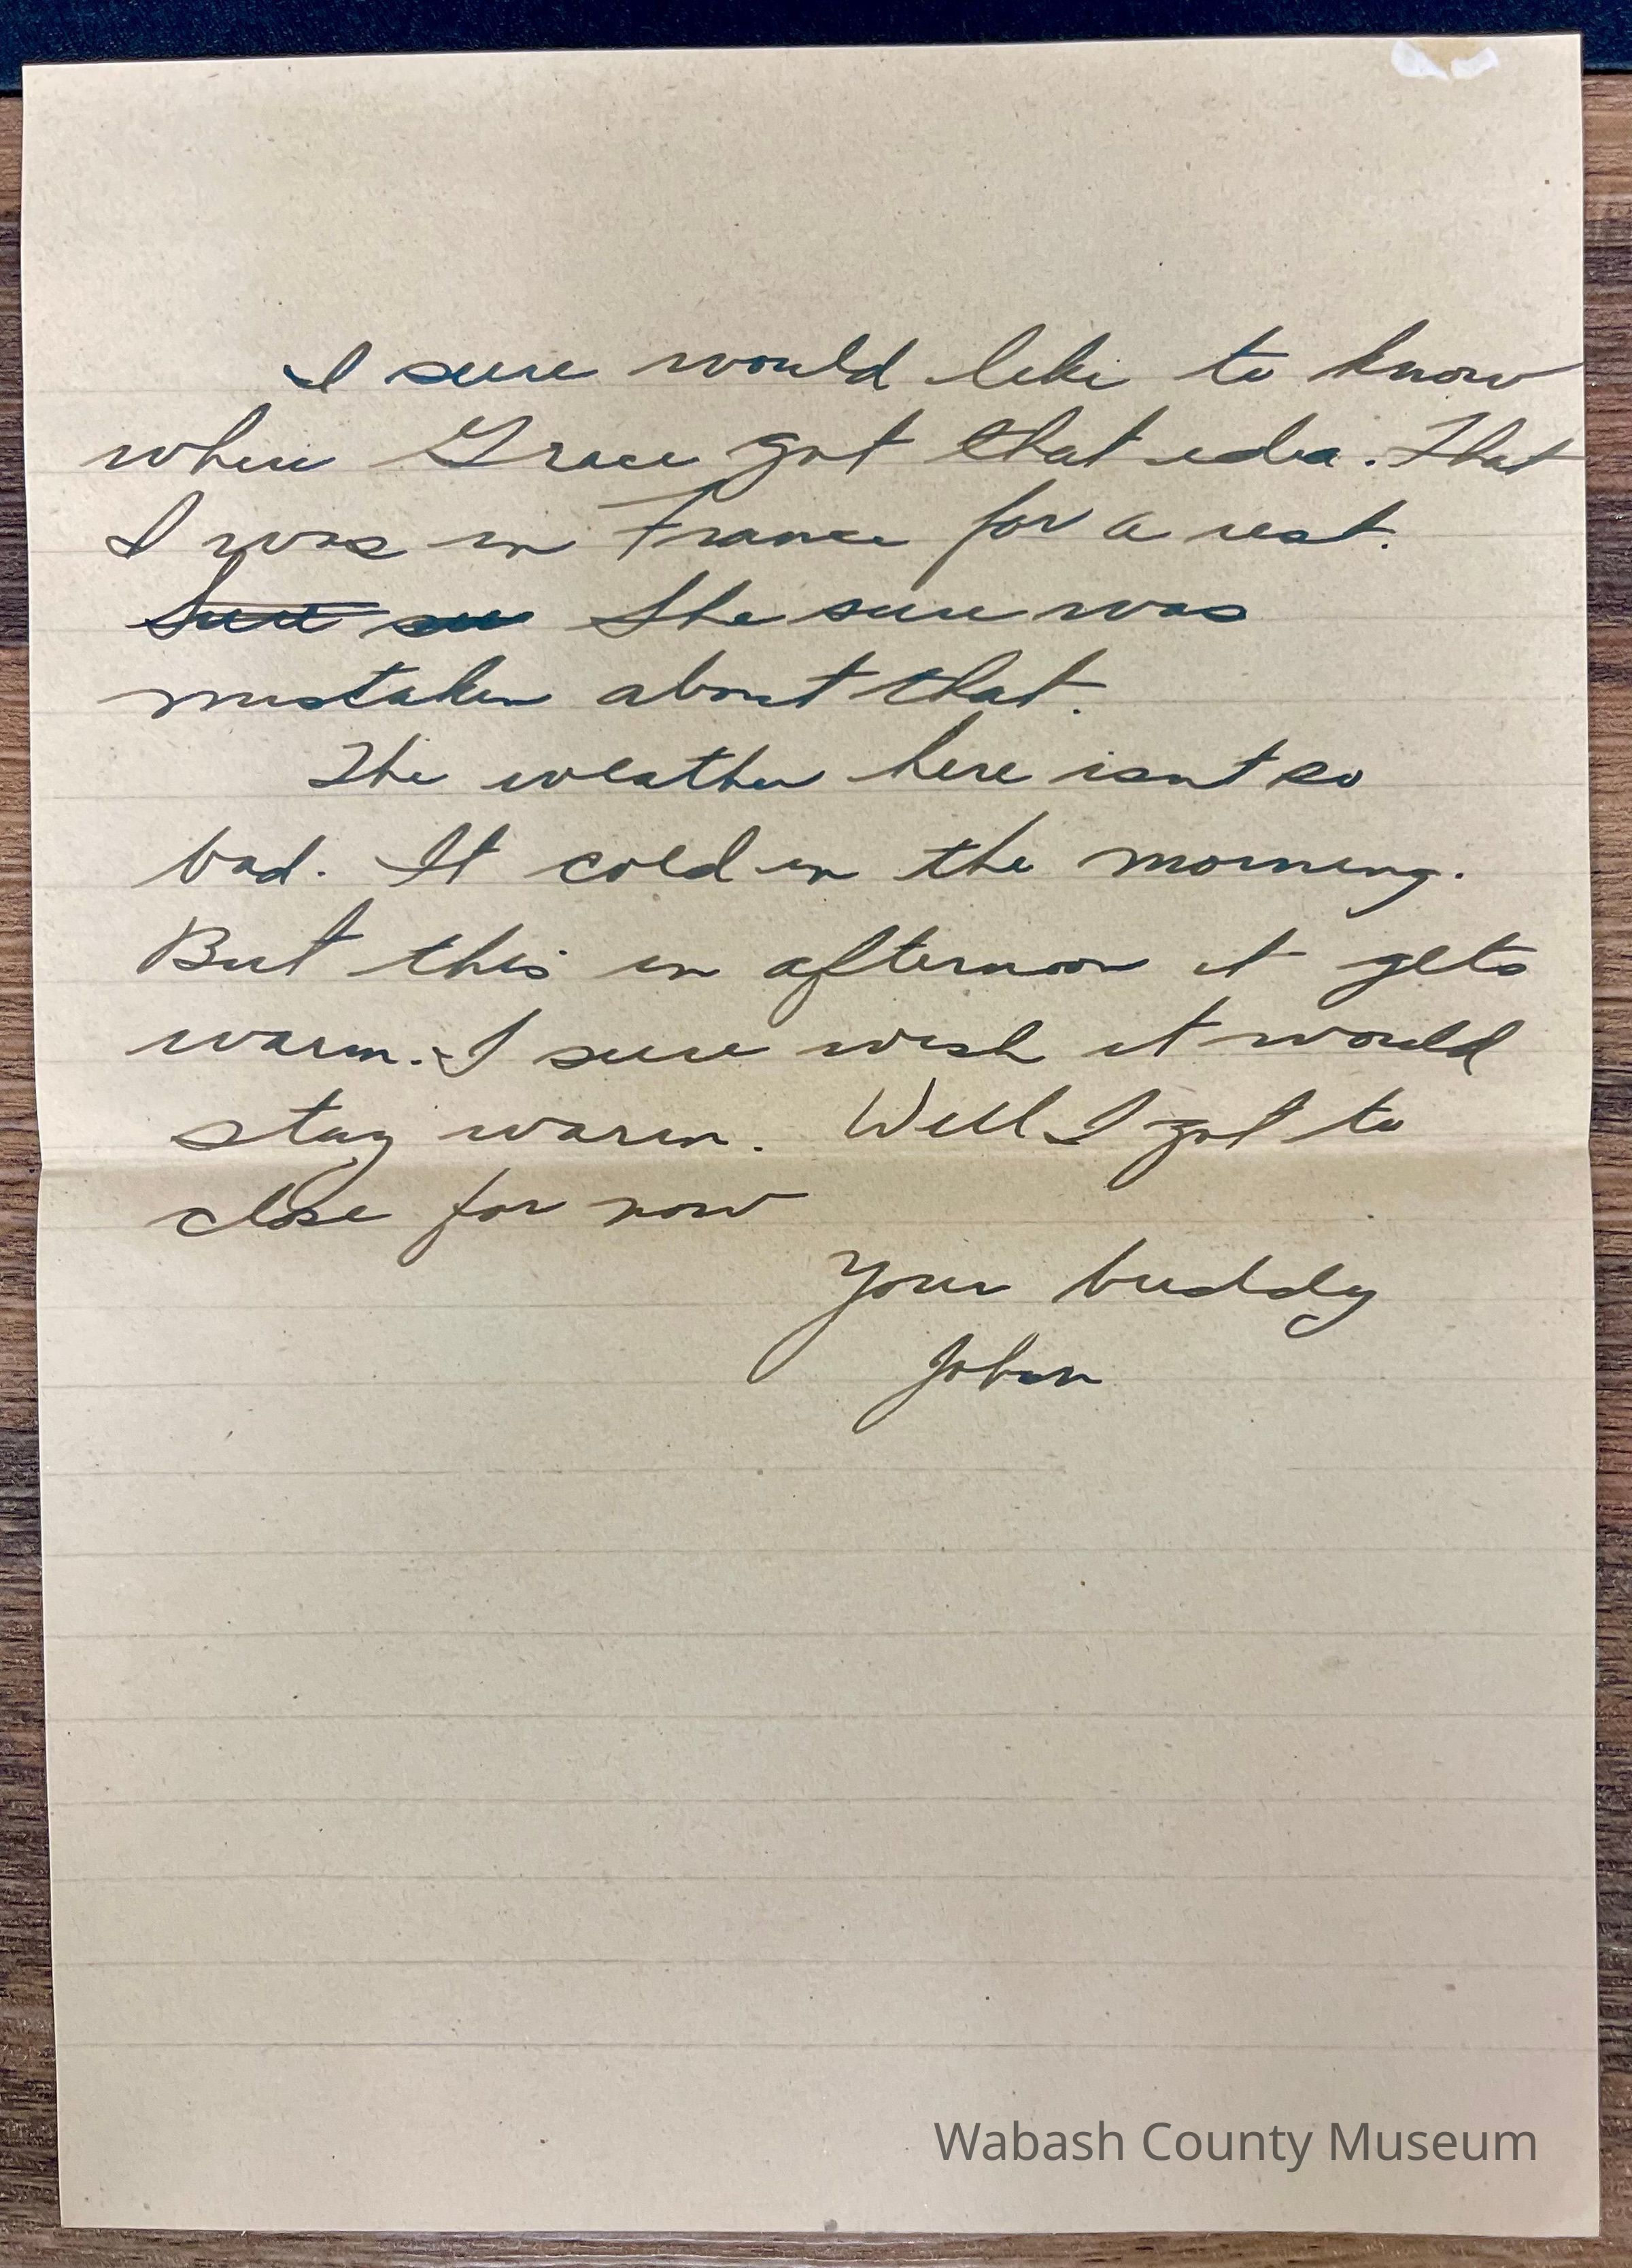 I sure would like to know
where Grace got that idea. That
I was in France for a rest.
She sure was
mistaken about that.
The weather here isnt so
bad. It cold in the morning.
But this in afternoon it gets
warm. I sure wish it would
stay warm. Well I got to
close for now
Your buddy
John
Wabash County Museum